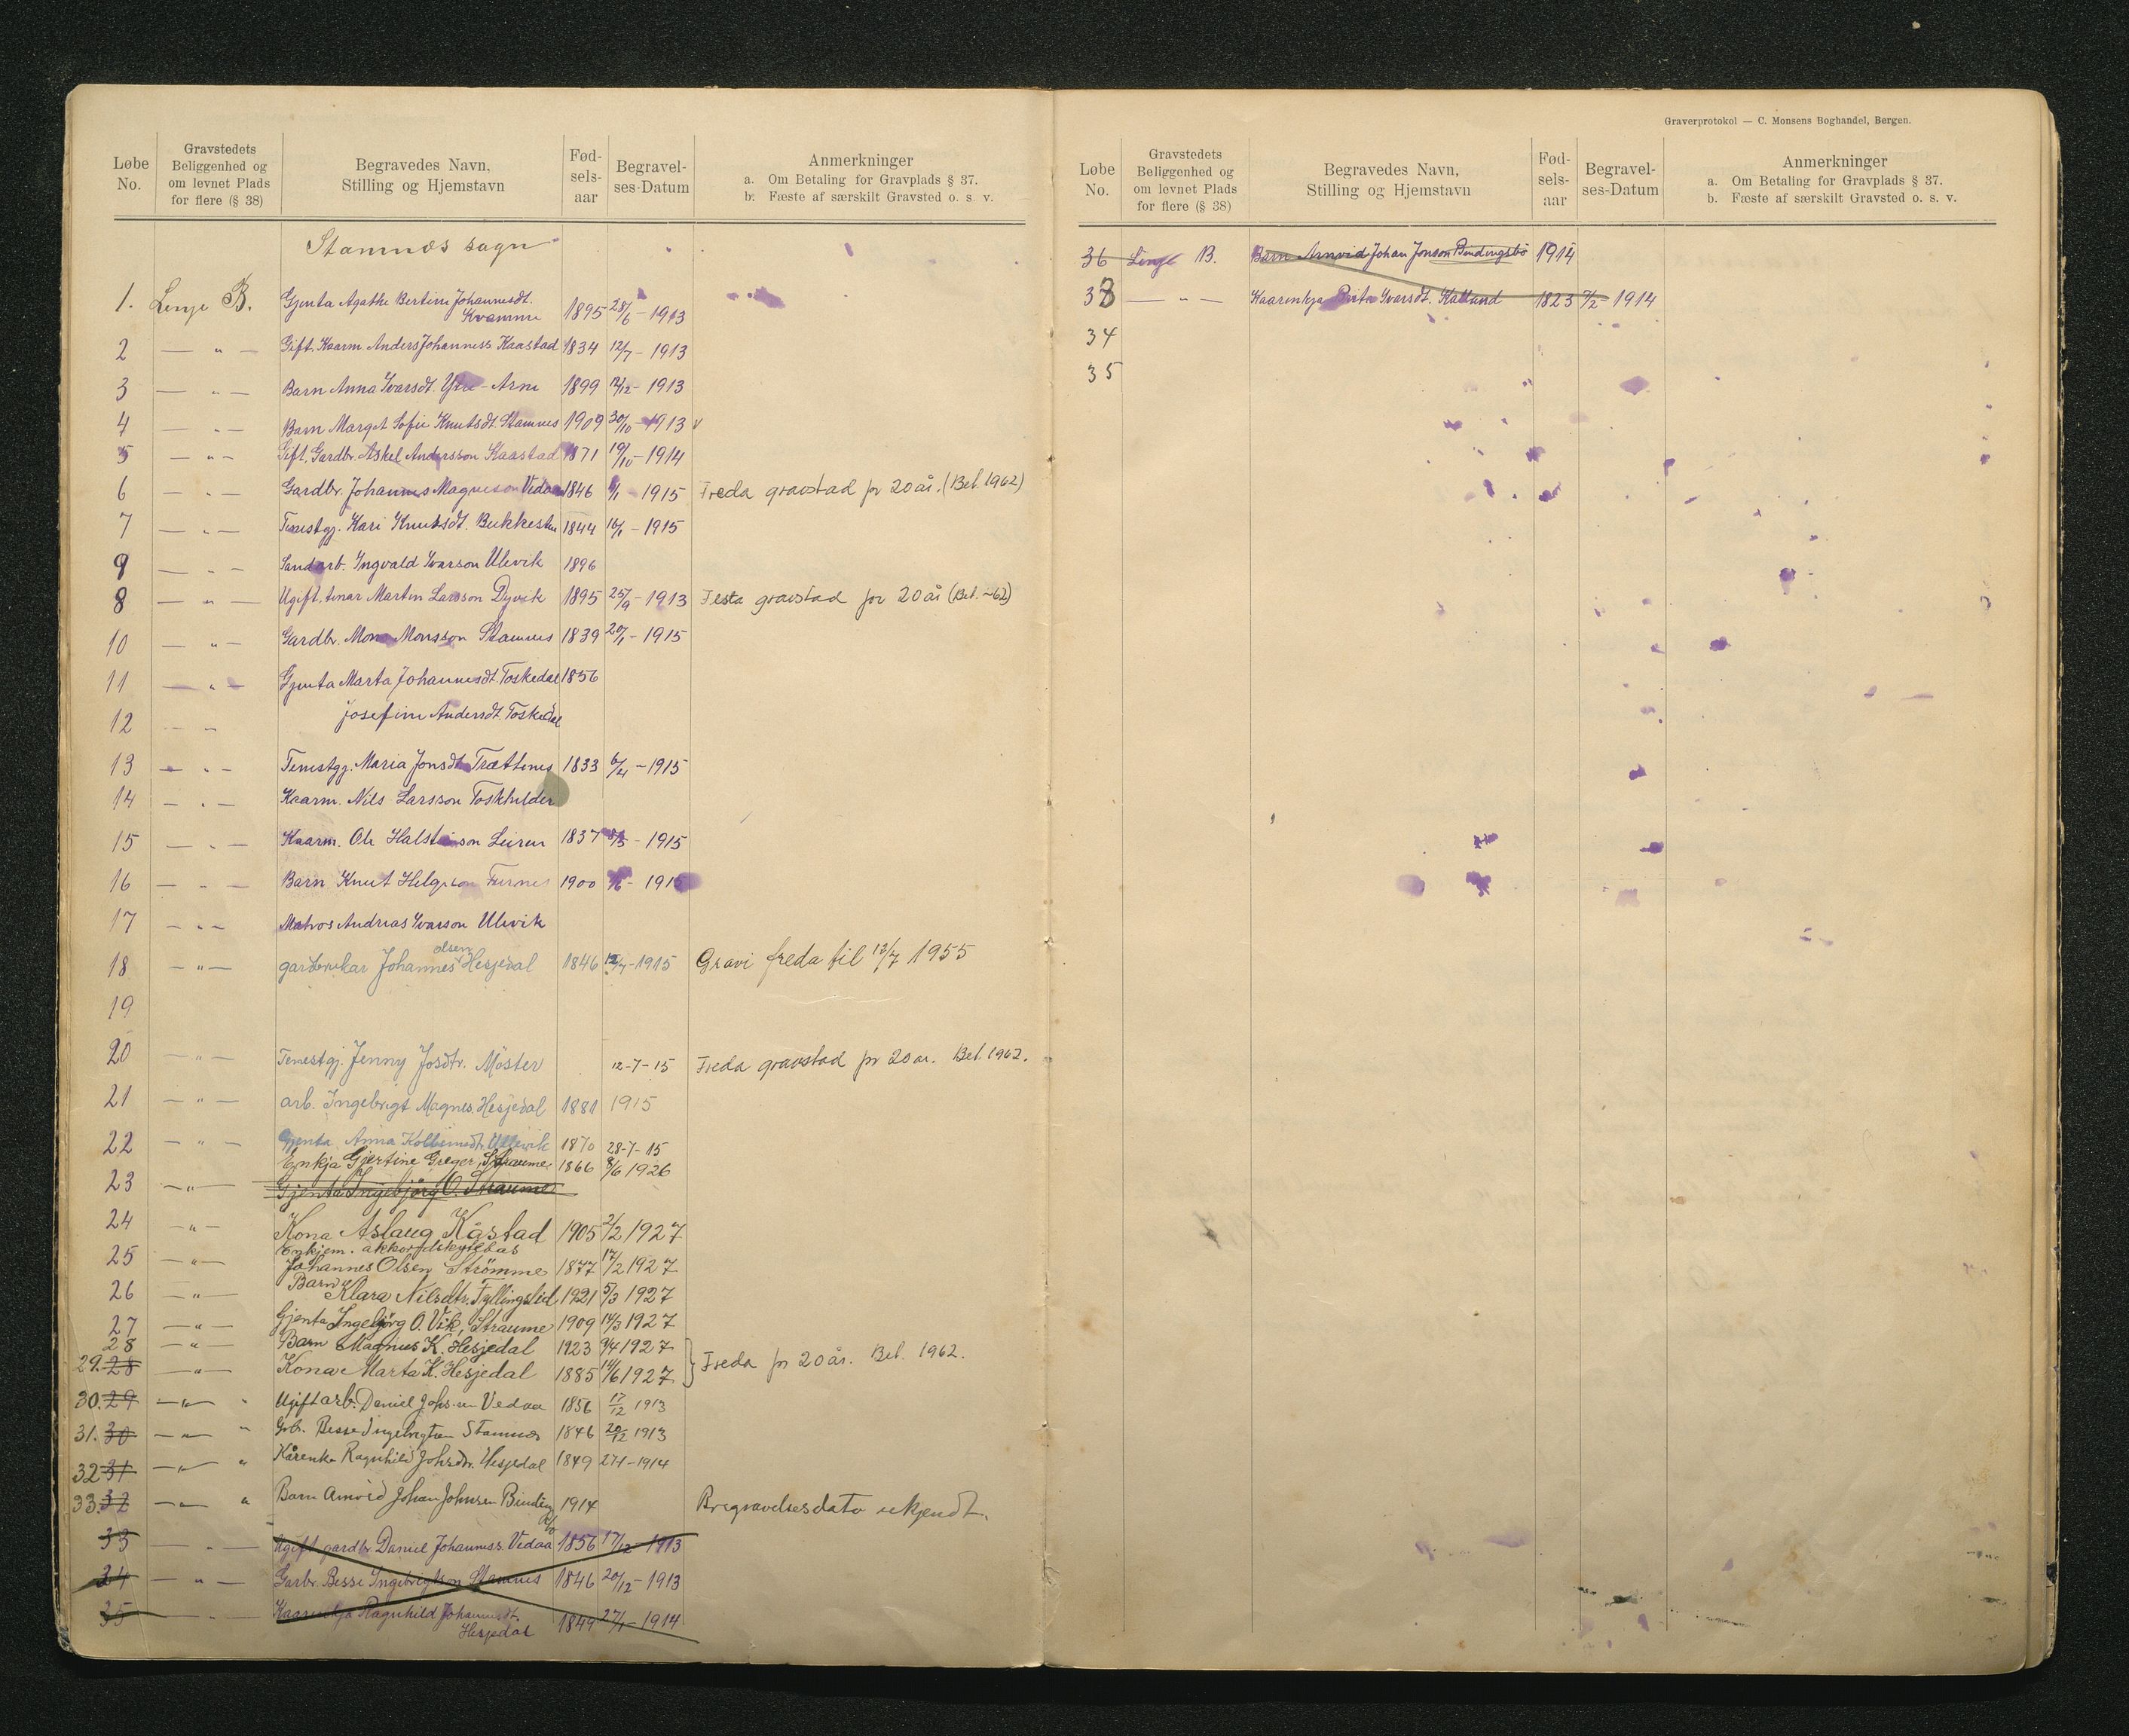 Løbe No.
Gravstedets Beliggenhed og om levnet Plads for flere (§ 38)
Begravedes Navn, Stilling og Hjemstavn
Fød-sels-aar
Begravel-ses-Datum
Anmerkninger
a. Om Betaling for Gravplads § 37.
b. Fæste af særskilt Gravsted o. s. v.
Stamnes sogn
1. Lenje B. Gjenta Agathe Bertine Johannesdt. Kvamme 1895 28/6 - 1913
2 — " — Gift. Kaarm. Anders Johanness Kaastad 1834 12/7 - 1913
3 — " — Barn Anna Ivarsdt. Ytre-Arne 1899 12/12 - 1913
4 — " — Barn Marget Sofie Knutsdt. Stamnes 1909 30/10 - 1913 v
5 — " — Gift. Gardbr. Askel Andersson Kaastad 1871 19/10 - 1914
6 — " — Gardbr. Johannes Magneson Vedaa 1846 - 1915 Freda gravstad pr 20 år. (Bet. 1962)
7 — " — Tenestgj. Kari Knutsdt. Bukkesten 1844 16/1 - 1915
9 — " — Sandarb. Ingvald Ivarson Ulevik 1896
8 — " — Ugift. tenar Martin Larsson Dyvik 1895 25/9 - 1913 Festa gravstad for 20 år (Bet. -62)
10 — " — Gardbr. Mons Monsson Stamnes 1839 20/1 - 1915
11 — " — Gjenta Marta Johannesdt. Toskedal 1856
12 — " Josefine Andersdt. Toskedal
13 — " — Tenestgj. Maria Jonsdt. Trættenes 1833 6/4 - 1915
14 — " — Kaarm. Nils Larsson Toskhilder
15 — " — Kaarm. Ole Halsteinson Leiren 1837 - 1915
16 — " — Barn Knut Helgeson Furnes 1900 - 1915
17 — " — Matros Andreas Ivarson Ulevik
18 — " — gardbrukar Johannes olsen Hesjedal 1846 12/7 - 1915 Gravi freda til 12/7 1955
19
20 — " — Tenestgj. Jenny Josdtr. Möster 12-7-15 Freda gravstad pr 20 ar. Bet. 1962.
21 — " — arb. Ingebrigt Magnes. Hesjedal 1881 1915
22 — " — Gjenta Anna Kolbeinsdt. Ullevik 1870 28-7-15
Enkja Gjertine Greger. Straume 1866 8/6 1926
23 — " — Gjenta Ingebjörg O. Straume
24 — " — Kona Aslaug Kåstad 1905 2/2 1927
Enkjem.
25 — " — Johannes Olsen Strömme 1877 17/2 1927
26 — " — Barn Klara Nilsdtr. Fyllingslid 1921 5/3 1927
27 — " — Gjenta Ingebjörg O. Vik, Straume 1909 14/3 1927
28 — " — Barn Magnus K. Hesjedal 1923 9/4 1927
29. 28 — " — Kona Marta K. Hesjedal 1885 14/6 1927 } Freda pr 20 år. Bet. 1962.
30. 29 — " — " Ugift arb. Daniel Johs.-n Vedaa 1856 17/12 1913
31. 30 — " — " Grbr. Besse Ingebrigtsn Stamnes 1846 20/12 1913
32 31 — " — " Kårenke Ragnhild Johsdtr. Hesjedal 1849 27-1-1914
33. 32 — " — " Barn Arnvid Johan Johnsen Binding bø 1914 Bregravelsesdato ukjendt.
33 — " — Ugift gardbr. Daniel Johanness Vedaa 1856 17/12 - 1913
34 — " — Garbr. Besse Ingebrigtson Stamnes 1846 20/12 - 1913
35 — " — Kaarenkja Ragnhild Johannesdt. Hesjedal 1849 27/1 - 1914
Graverprotokol — C. Monsens Boghandel, Bergen.
Løbe No.
Gravstedets Beliggenhed og om levnet Plads for flere (§ 38)
Begravedes Navn, Stilling og Hjemstavn
Fød-sels-aar
Begravel-ses-Datum
Anmerkninger
a. Om Betaling for Gravplads § 37.
b. Fæste af særskilt Gravsted o. s. v.
36 Lenje B. Barn Arnvid Johan Jonson Bindingsbö 1914
38 — " — Kaarenkja Brita Ivarsdt. Kalland 1823 7/2 - 1914
34
35